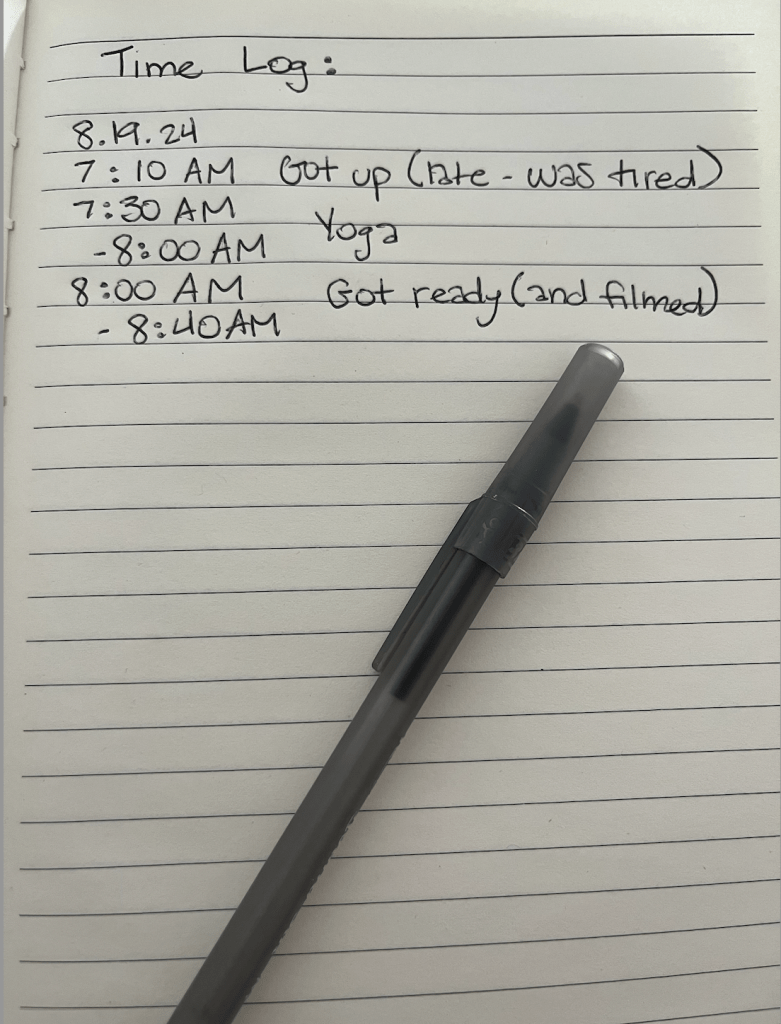 Time Log:
8.19.24
7:10 AM Got up (late - was tired)
7:30 AM
-8:00 AM Yoga
8:00 AM Got ready (and filmed)
- 8:40 AM